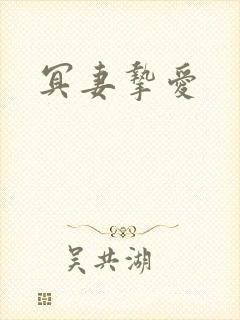 冥妻摯愛
吴共湖